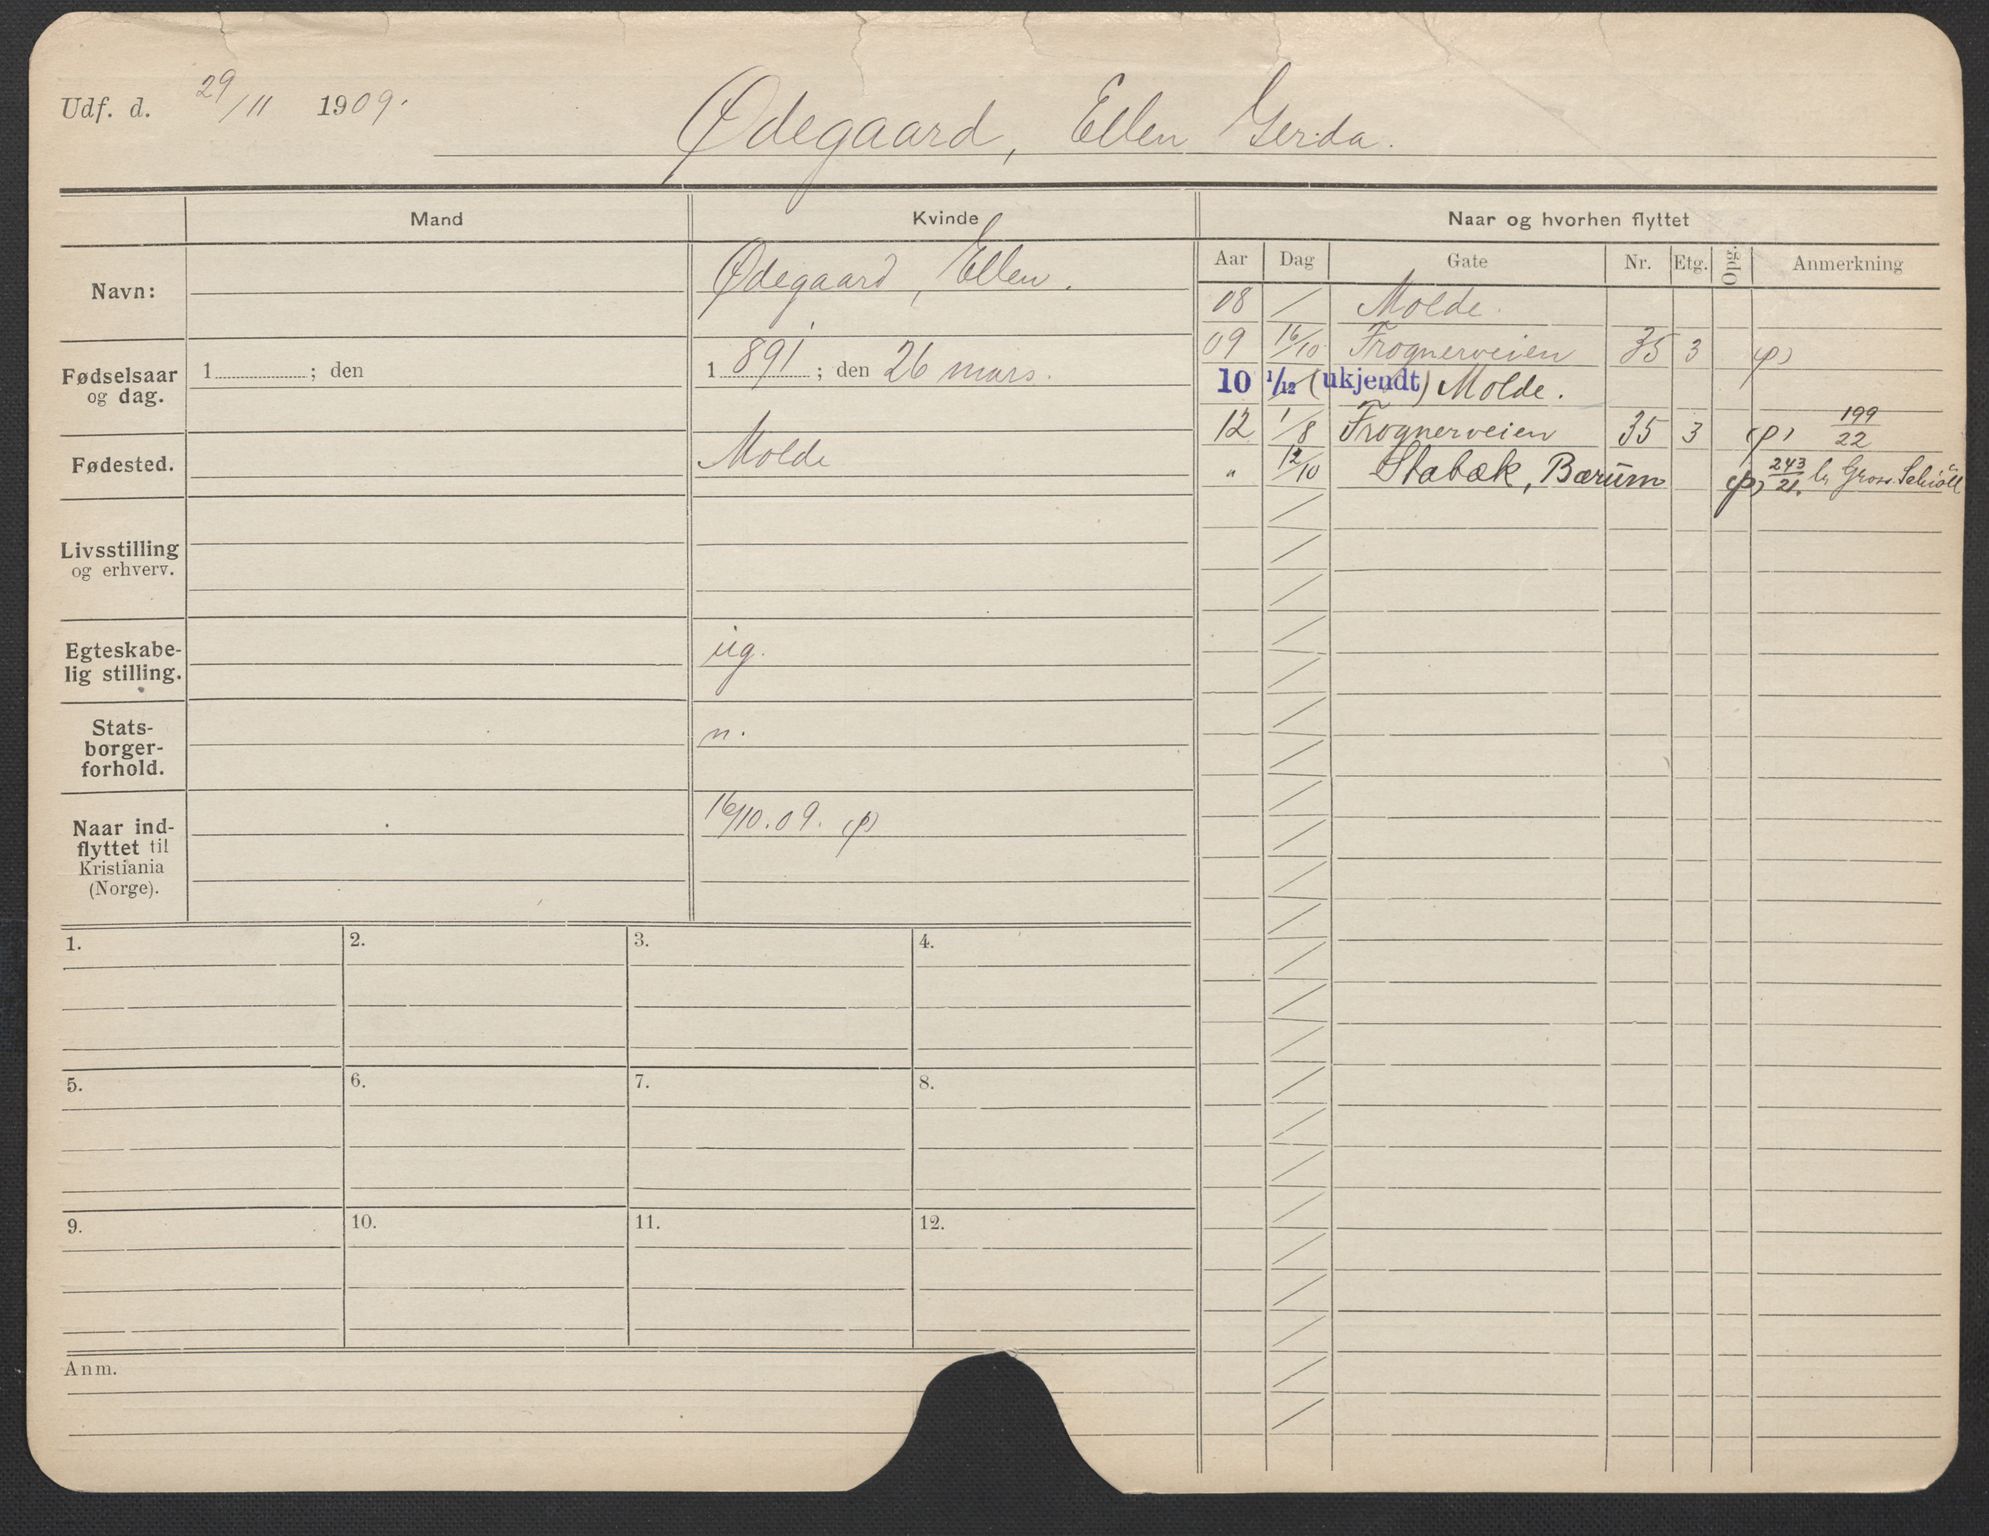 Udf. d. 29/11 1909.
Ødegaard, Ellen Gerda.
Mand Kvinde Naar og hvorhen flyttet
Aar Dag Gate Nr. Etg. Opg. Anmerkning
Navn: Ødegaard, Ellen.
Fødselsaar og dag. 1 ; den 1891 ; den 26 mars.
Fødested. Molde
Livsstilling og erhverv.
Egteskabe-
lig stilling. ug.
Stats-
borger-
forhold. n.
Naar ind-
flyttet til
Kristiania
(Norge). 16/10.09. (p)
08 / Molde.
09 16/10 Frognerveien 35 3 (p)
10 1/12 (ukjendt) Molde.
12 1/8 Frognerveien 35 3 (p) 199/22
" 12/10 Stabæk, Bærum (p) 243/21.
1. 2. 3. 4.
5. 6. 7. 8.
9. 10. 11. 12.
Anm.